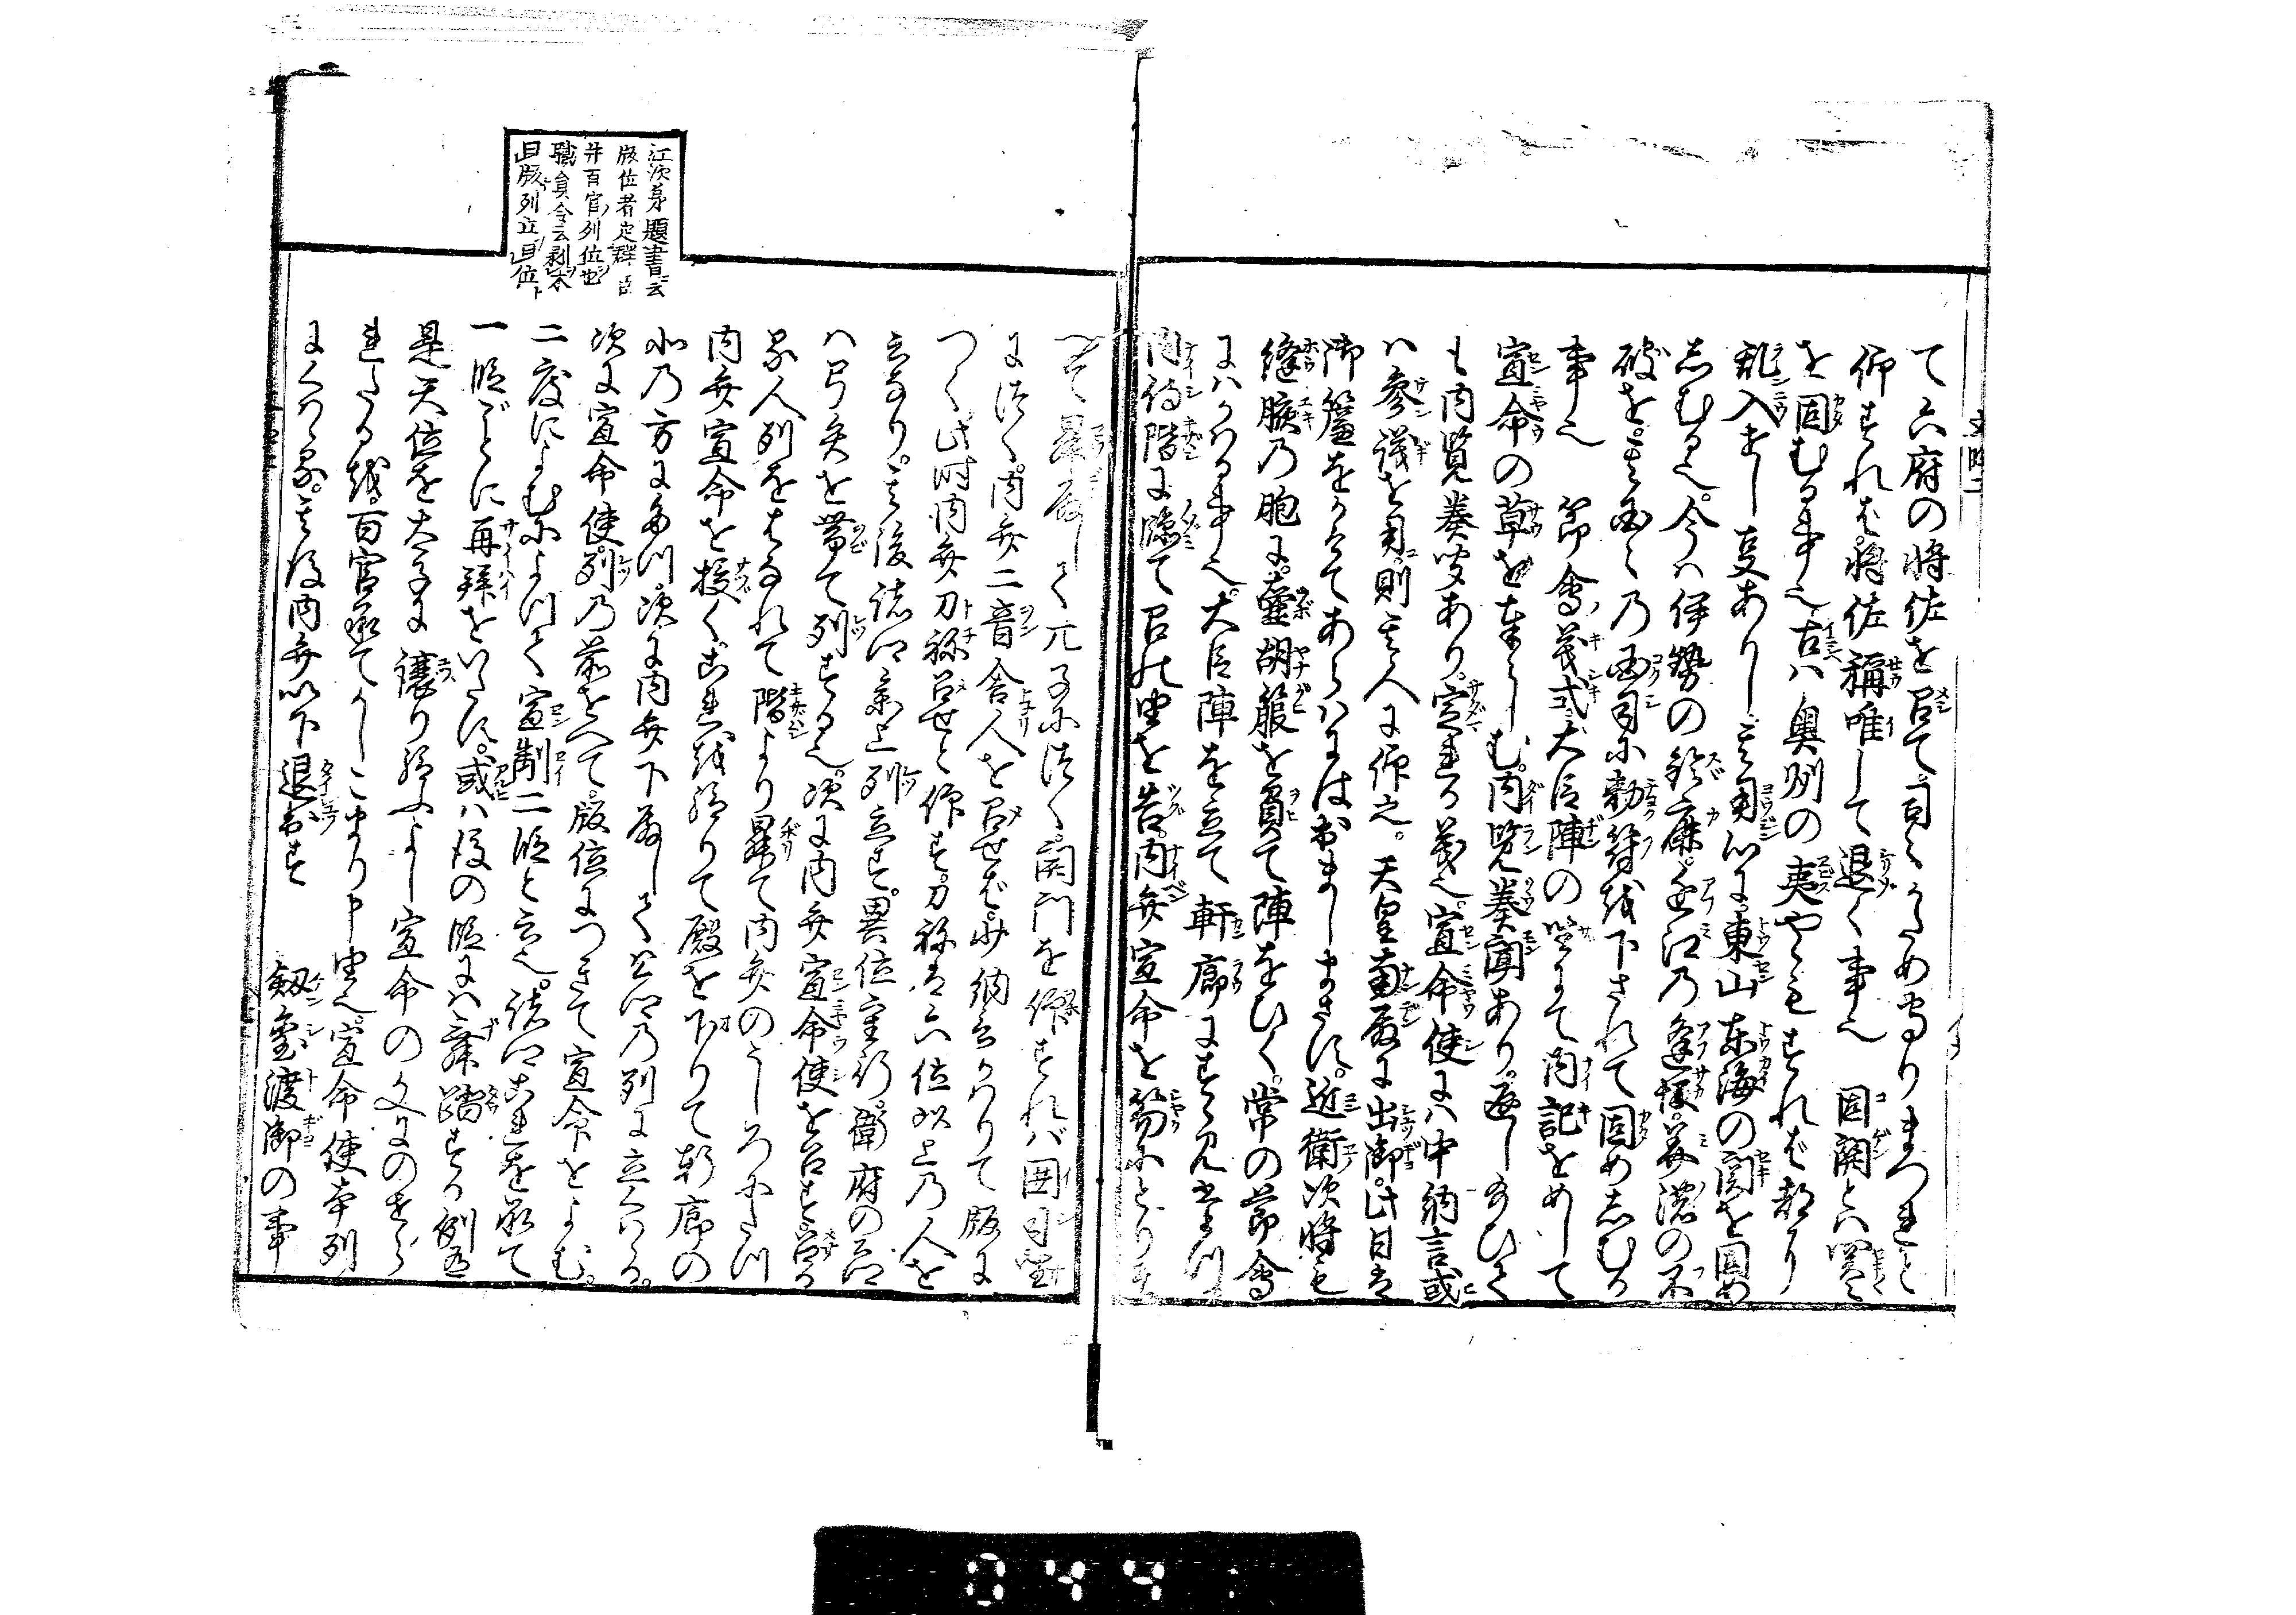 て六府の将佐を召て司々かため守りまつれと
仰すれば将佐稱唯して退く事也 固関とハ関
を固むる事也古ハ奥州の夷やゝもすれば都に
乱入せし变ありし其用心に東山東海の関を固め
しむる也今ハ伊勢の鈴鹿近江の逢坂美濃の不
破を其国々の国司に勅符を下されて固めしむる
事也 節會ノ儀式大臣陣の座にて内記をめして
宣命の草を奉らしむ内覧奏聞あり返し給ひて
も内覧奏聞あり定まる儀也宣命使にハ中納言或
ハ参議を用ユ則其人に仰之天皇南殿に出御此日は
御簾をかけてあらハにはおましまさず近衛次将も
縫腋の胞に壷胡籙を負て陣をひく常の節會
にハかハる事也大臣陣を立て軒廊にすゝみたつ
内侍階に臨て召れ内弁宣命を笏にとり
昇殿して兀子につく開門を仰すれバ囲司座
につく内弁二音舎人を召せば少納言かハりて版に
つく此時内弁刀祢召せと仰す刀祢は六位以上の人を
立なり其後諸卿参上列立す異位重行衛府の公卿
ハ弓矢を帯て列する也次に内弁宣命使を召す召る
人列をはなれて階より昇て内弁のうしろにたつ
内弁宣命を授くこれを給りて殿を下りて軒廊の
北の方にたつ次に内弁下殿して公卿の列に立くハゝる
次に宣命使列の前をへて版位につきて宣命をよむ
二度によむによつて宣制二段と云也諸卿これを承て
一段ごとに再拝をいたす或ハ後の段にハ舞踏する例也
是天位を太子に譲り給ふよし宣命の文にのせら
れたるを百官承てかしこまり申
宣命使本列
にくハゝる其後内弁以下退出す 剱璽渡御の事
江次第題書云
版位者定群臣
并百官ノ列位也
職員令云剥木
曰版列立曰位ト